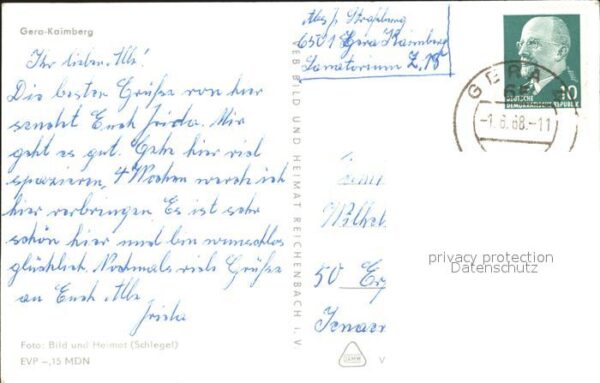 Gera-Kaimberg
Ihr lieben Alle!
Die besten Grüße von hier
sendet Euch Frida. Mir
geht es gut. Gehe hier viel
spazieren, 4 Wochen werde ich
hier verbringen. Es ist sehr
schön hier und bin wunschlos
glücklich. Nochmals viele Grüße
an Euch Alle
Frida
Foto: Bild und Heimat (Schlegel)
EVP –,15 MDN
VEB BILD UND HEIMAT REICHENBACH i. V.
Abs. F. Straßburg
6501 Gera Kaimberg
Sanatorium Z. 15
GERA
65
-1.6.68.-11
10
DEUTSCHE
DEMOKRATISCHE REPUBLIK
Wilhel
50
Jenaer
privacy protection
Datenschutz
V